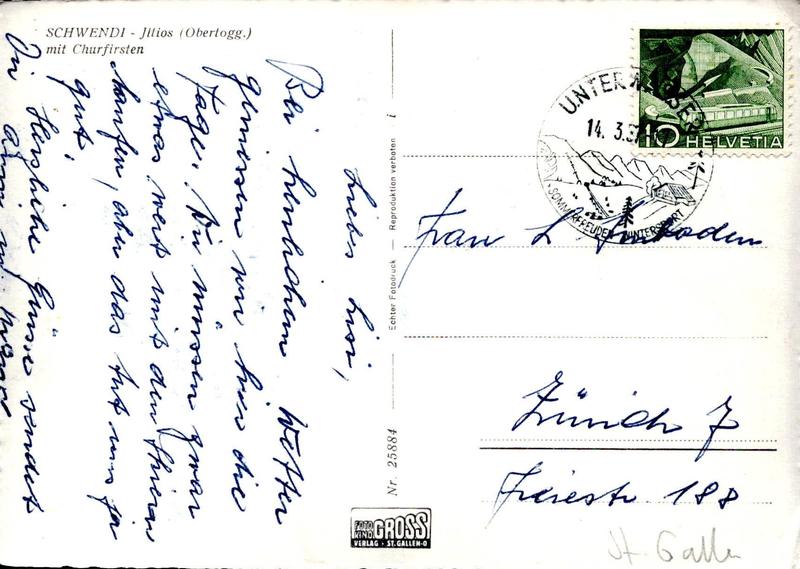 SCHWENDI - Jltios (Obertogg.)
mit Churfirsten
Liebes Lisi,
Bei herrlichem Wetter
geniessen wir hier die
Tage. Wir müssen zwar
etwas weit mit den Skiern
laufen, aber das tut uns ja
gut.
Die herzliche Grüsse sendet
Echter Fotodruck — Reproduktion verboten
i
Nr. 25884
FOTO KINO GROSS
VERLAG - ST.GALLEN-O
UNTERWASSER
14. 3. 57
SOMMERFREUDEN WINTERSPORT
10 HELVETIA
Frau L. Imboden
Zürich 7
Freiestr. 188
St. Gallen